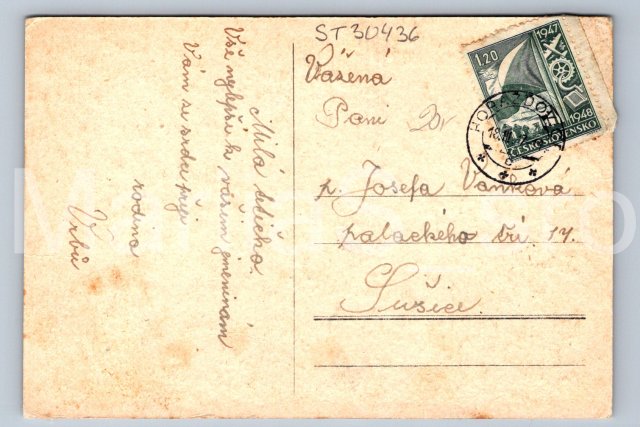 ST30436
Milá tetičko.
Vše nejlepší k vašim jmeninám
Vám ze srdce přeje
rodina
Vrbů
Vážená
Paní
p. Josefa Vaňková
palackého tří 17.
Sušice.
1947
1.20
1948
ČESKOSLOVENSKO
HORAŽĎOVICE